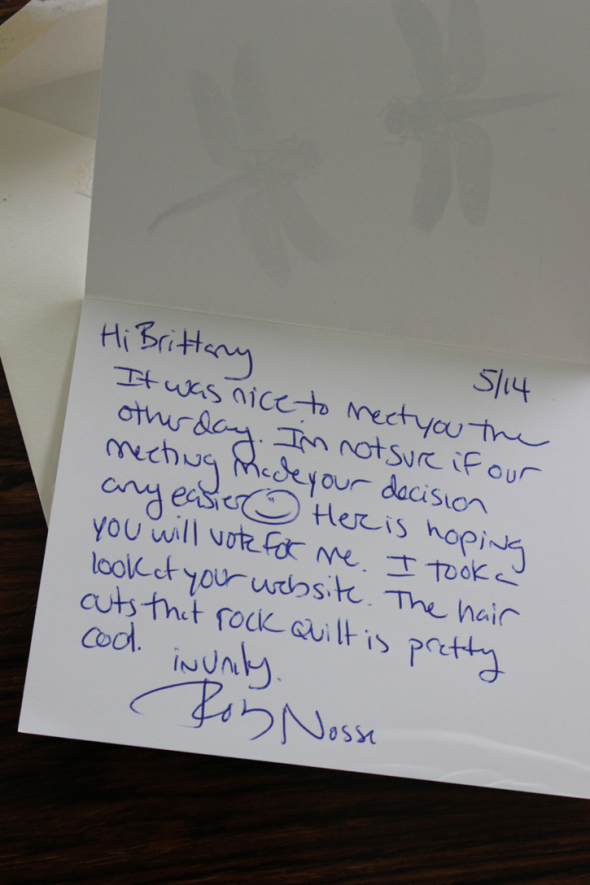 Hi Brittany
5/14
It was nice to meet you the
other day. I'm not sure if our
meeting made your decision
any easier Here is hoping
you will vote for me. I took a
look at your website. The hair
cuts that rock quilt is pretty
cool.
in unity.
Rob Nosse